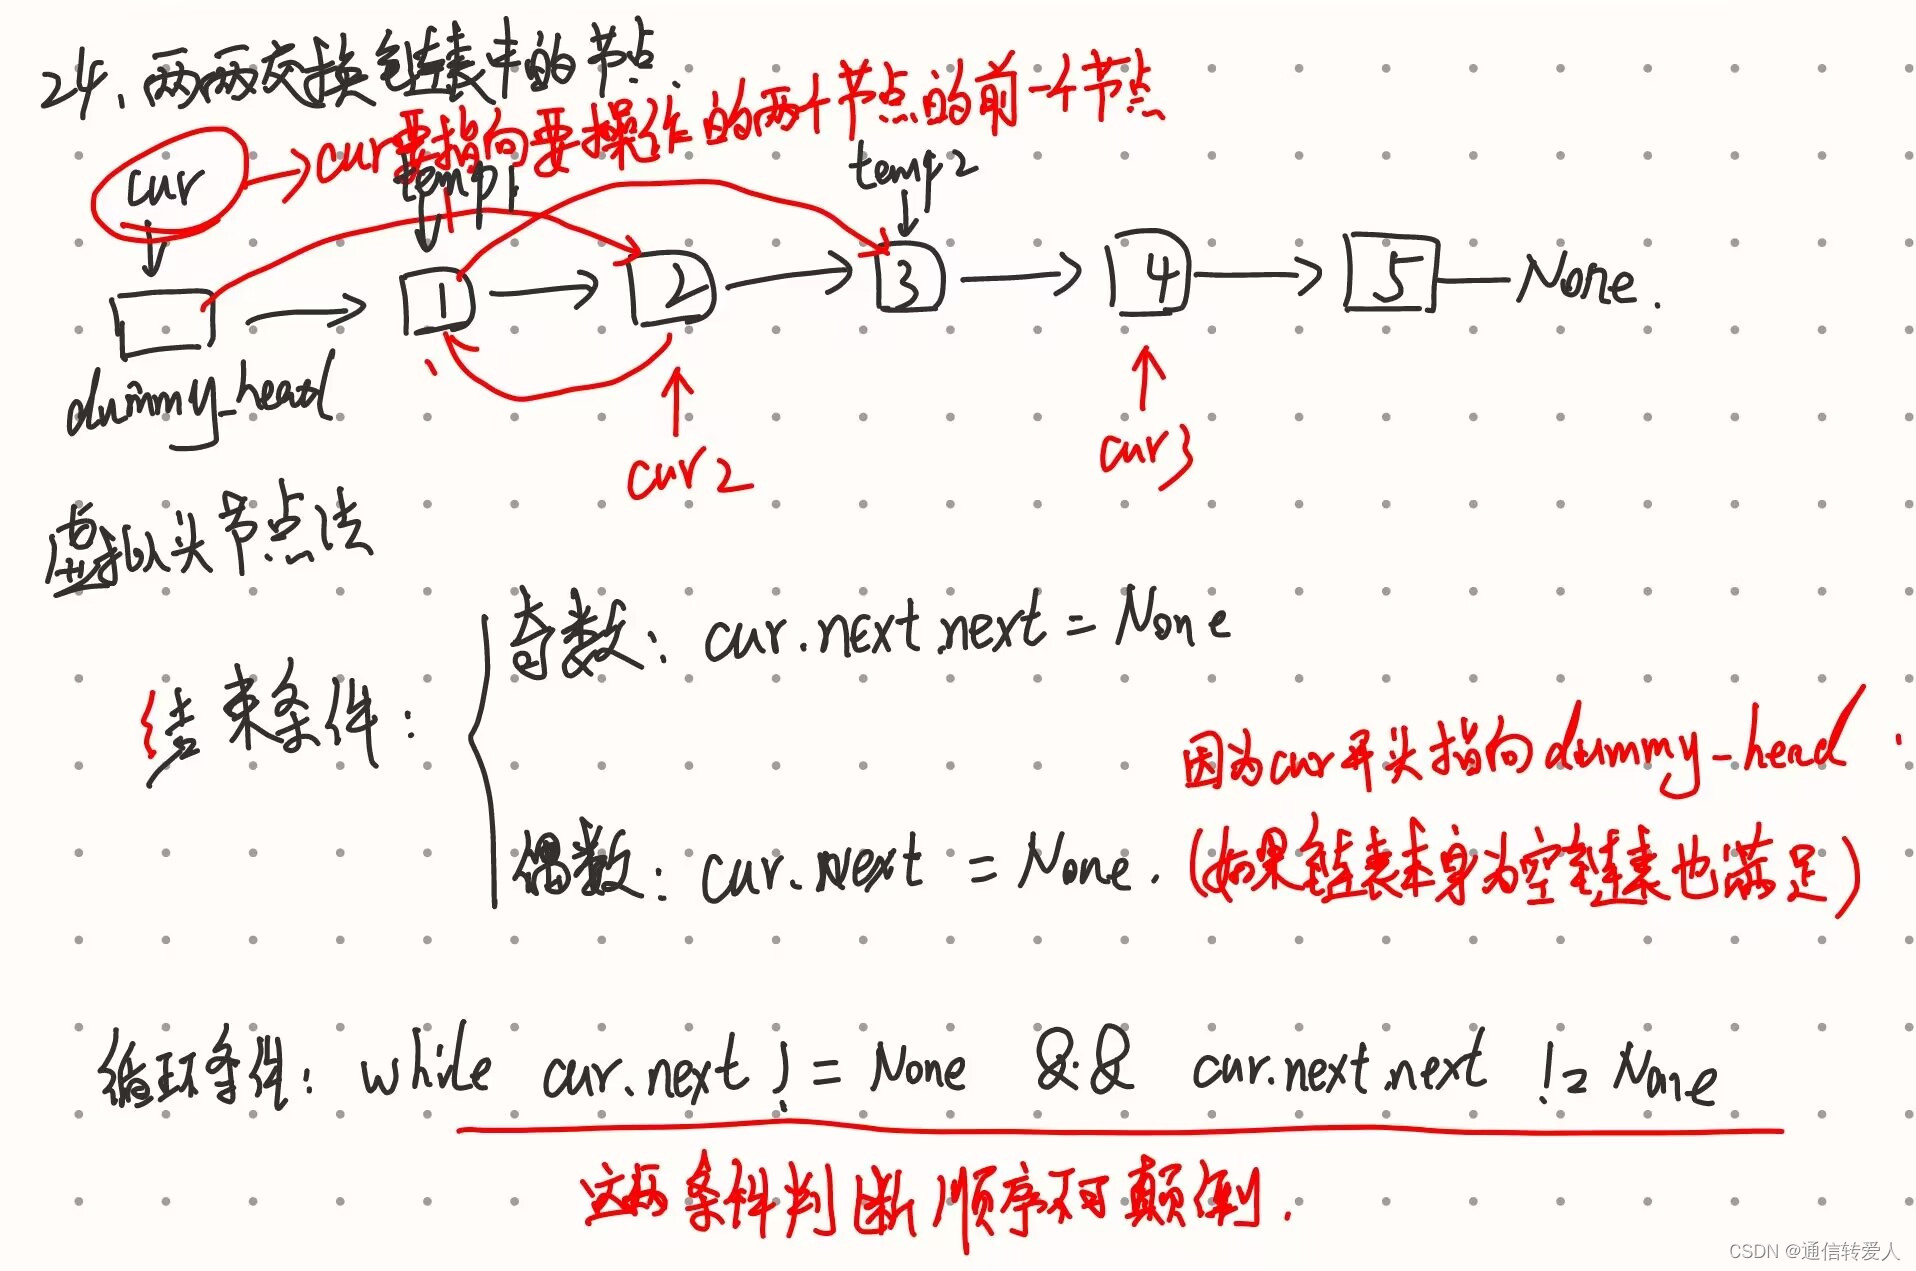 24、两两交换链表中的节点
cur → cur要指向要操作的两个节点的前一个节点
temp1 temp2
1 → 2 → 3 → 4 → 5 — None.
dummy_head
cur2 cur3
虚拟头节点法
结束条件:
奇数: cur.next.next = None
因为cur开头指向dummy_head
偶数: cur.next = None. (如果链表本身为空链表也满足)
循环条件: while cur.next != None && cur.next.next != None
这两条件判断顺序不可颠倒.
CSDN @通信转爱人